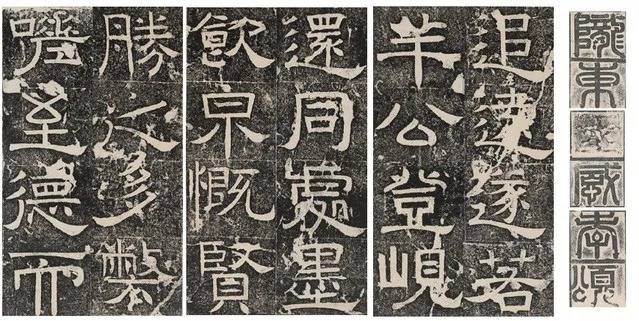 隴東
感
孝頌
追遠遂若
羊公登峴
還同處墨
飲泉慨賢
勝之多弊
嗟至德而